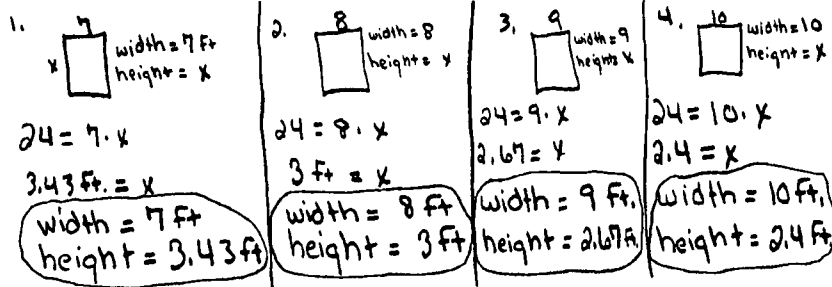 1.
7
x
width = 7 ft
height = x
24 = 7 · x
3.43 ft. = x
width = 7 ft
height = 3.43 ft
2.
8
width = 8
height = x
24 = 8 · x
3 ft = x
width = 8 ft
height = 3 ft
3.
9
width = 9
height = x
24 = 9 · x
2.67 = x
width = 9 ft.
height = 2.67 ft.
4.
10
width = 10
height = x
24 = 10 · x
2.4 = x
width = 10 ft.
height = 2.4 ft.